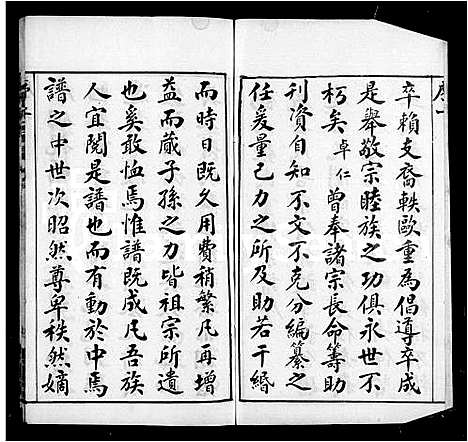 序一
卒賴支裔軼歐重為倡導卒成
是舉敬宗睦族之功俱永世不
朽矣卓仁曾奉諸宗長命籌助
刊資自知不文不克分編纂之
任爰量己力之所及助若干緡
而時日既久用費稍繁凡再增
益而蕆子孫之力皆祖宗所遺
也奚敢恤焉惟譜既成凡吾族
人宜閱是譜也而有動於中焉
譜之中世次昭然尊卑秩然嫡